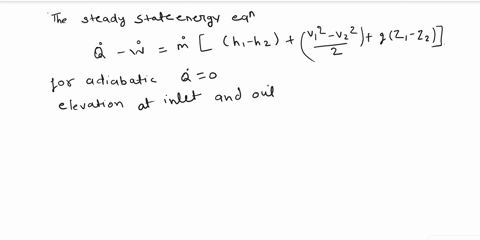 The steady state energy eqⁿ
Q̇ - Ẇ = ṁ [ (h₁-h₂) + (v₁²-v₂²/2) + g(Z₁-Z₂)]
for adiabatic Q̇ = 0
elevation at inlet and outl